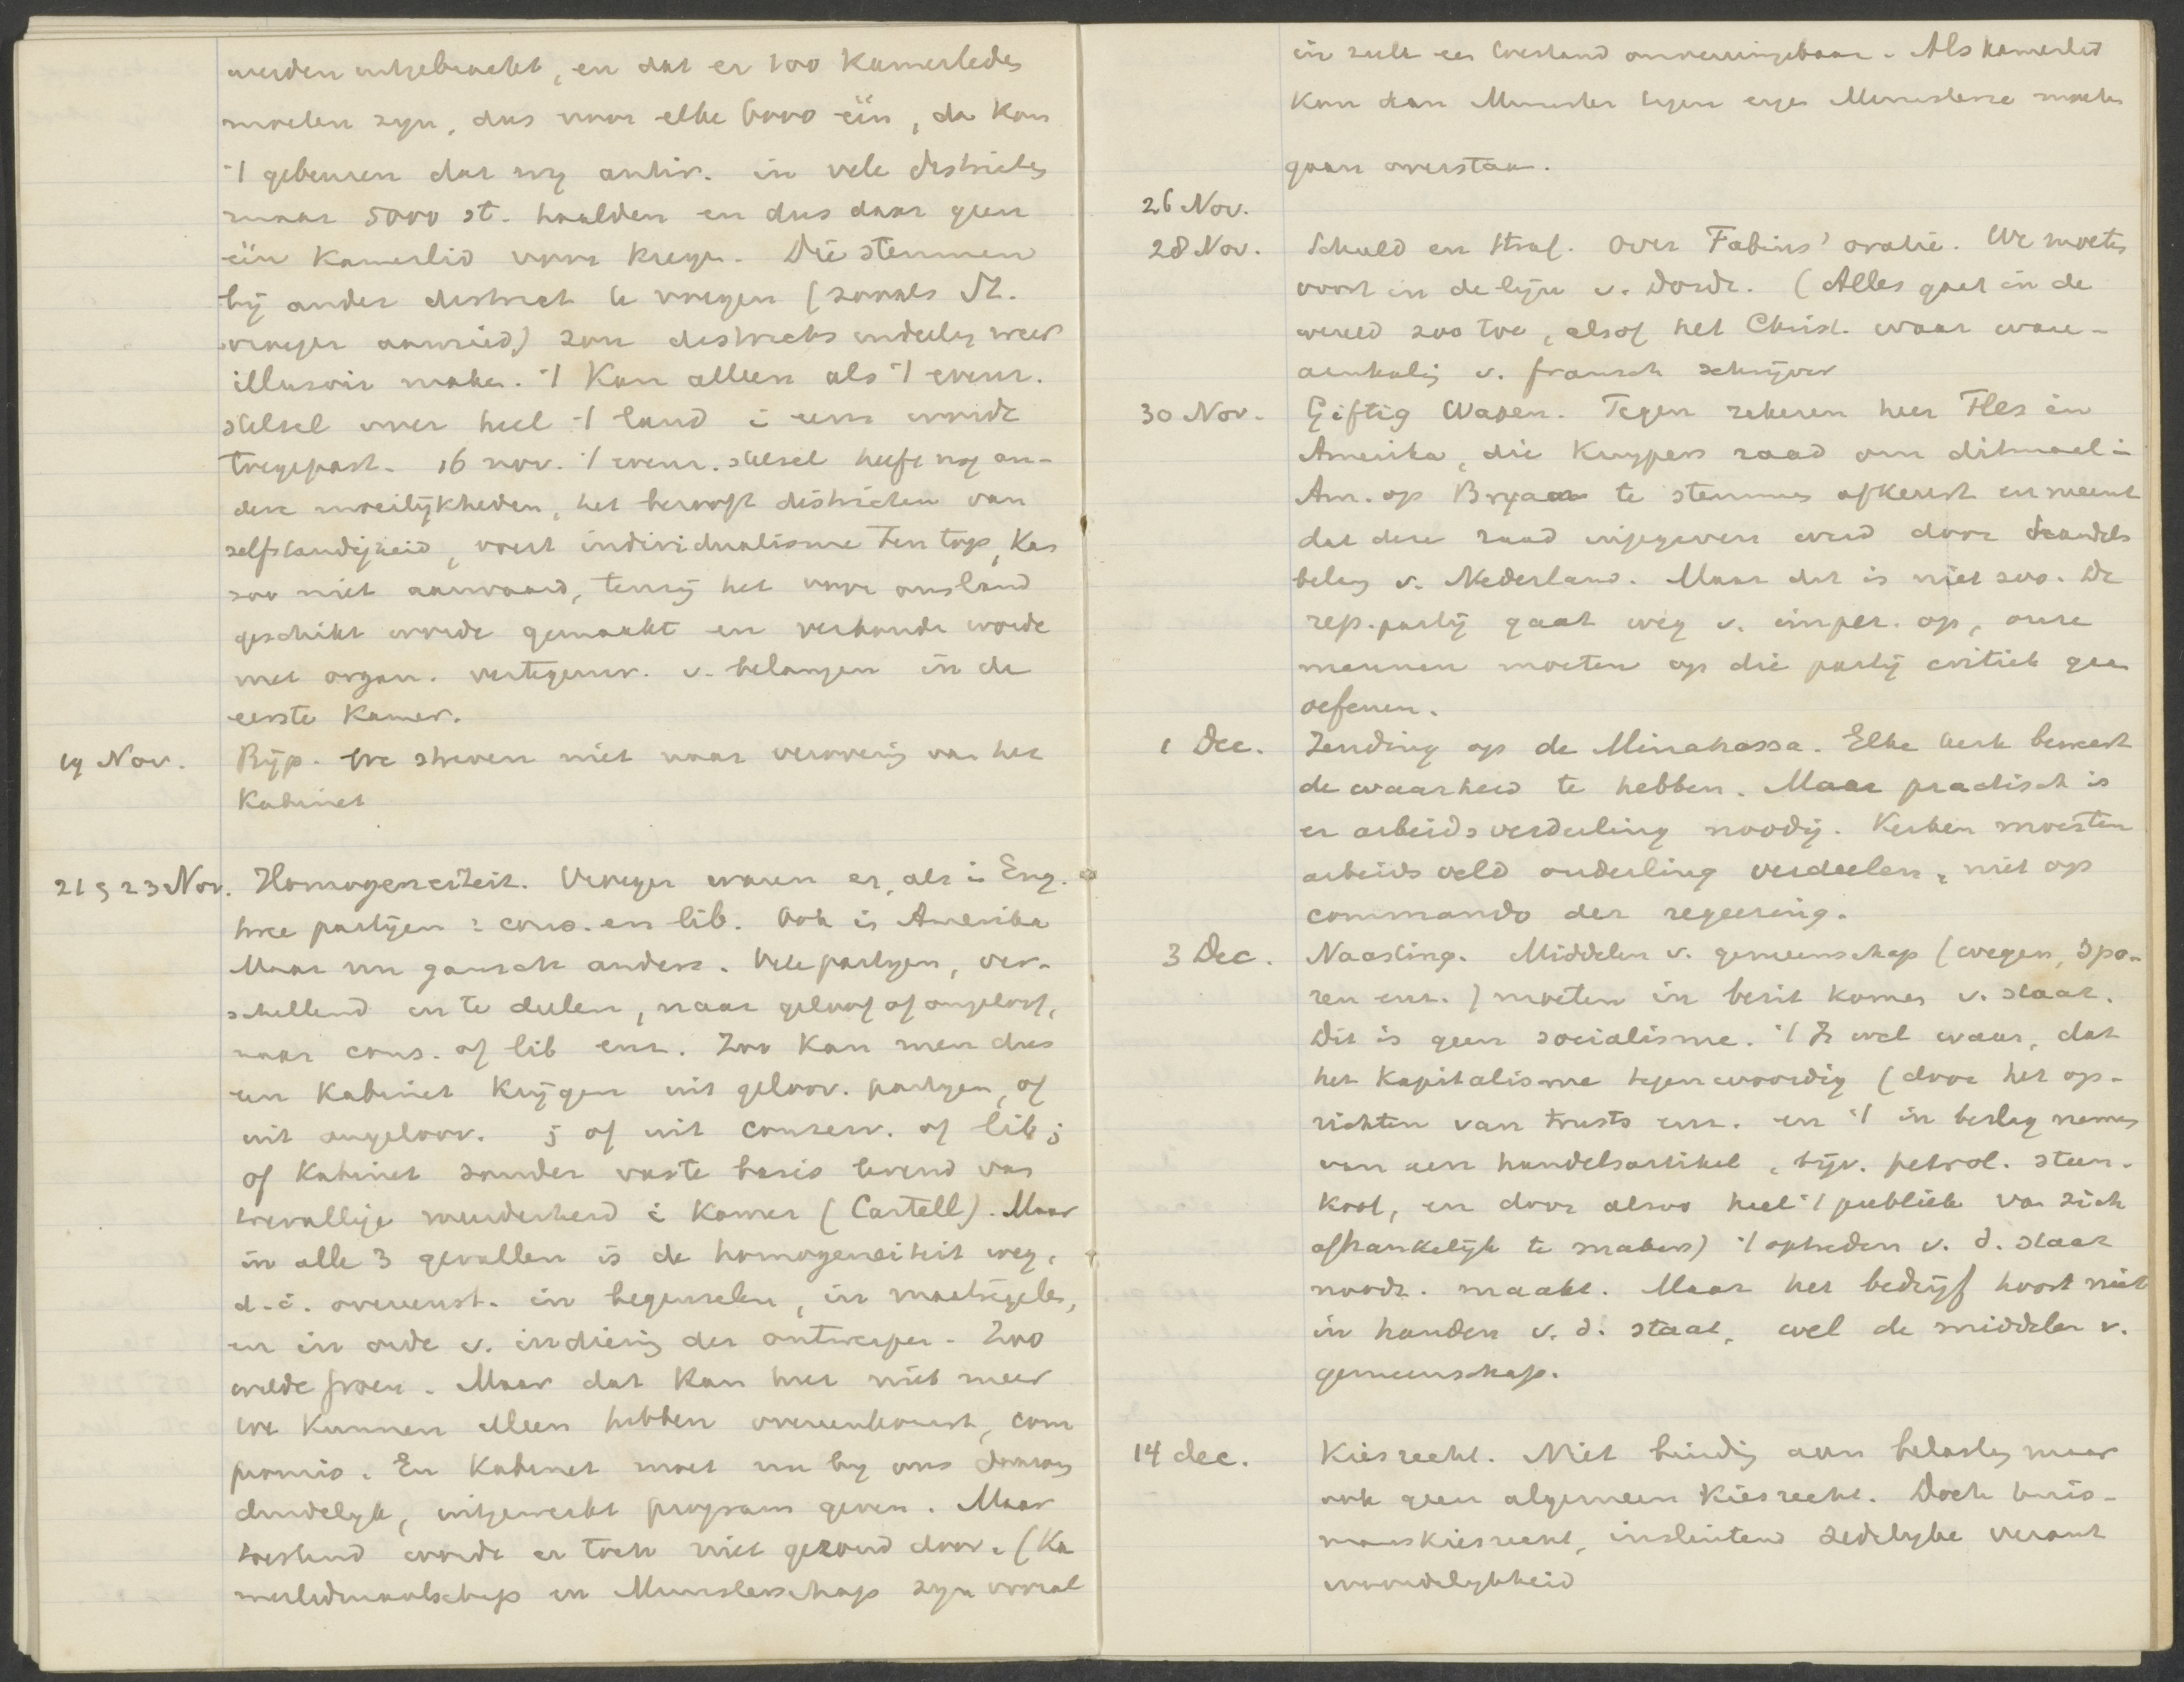 werden uitgebracht, en dat er 100 Kamerleden
moeten zyn, dus voor elke 6000 één, dan kan
't gebeuren dat wy antir. in vele districten
maar 5000 st. haalden en dus daar geen
één Kamerlid voor kregen. Die stemmen
bij ander district te voegen (zooals St.
vroeger aanried) zou districts indeeling weer
illusoir maken. 't Kan alleen als 't evenr.
stelsel over heel 't land i eens wordt
toegepast. 16 nov. 't evenr. stelsel heeft nog an-
dere moeilijkheden, het berooft districten van
zelfstandigheid, voert individualisme ten top, Kan
zoo niet aanvaard, tenzij het voor ons land
geschikt worde gemaakt en verbonden worde
met organ. vertegenw. v. belangen in de
eerste Kamer.
19 Nov. Rijp. We streven niet naar verovering van het
Kabinet
21 & 23 Nov. Homogeneiteit. Vroeger waren er, als i Eng.
twee partijen : cons. en lib. Ook in Amerika
Maar nu gansch anders. Vele partyen, ver-
schillend in te deelen, naar geloof of ongeloof,
naar cons. of lib enz. Zoo kan men dus
een Kabinet krijgen uit geloov. partyen, of
uit ongeloov. ; of uit conserv. of lib ;
of Kabinet zonder vaste basis levend van
toevallige meerderheid i Kamer (Cartell). Maar
in alle 3 gevallen is de homogeneiteit weg,
d.i. overeenst. in beginselen, in maatregelen,
en in orde v. indiening der ontwerpen. Zoo
wilde Groen. Maar dat kan hier niet meer
We kunnen alleen hebben overeenkomst, com
promis. En Kabinet moet nu by ons daarom
duidelyk, uitgewerkt program geven. Maar
toestand wordt er toch niet gezond door. (Ka
merlidmaatschap en Ministerschap zyn vooral
in zulk een toestand onvereenigbaar. Als Kamerlid
kan dan Minister tegen eigen Ministerie moeten
gaan overstaan.
26 Nov.
28 Nov. Schuld en straf. Over Fabius' oratie. We moeten
voort in de lijn v. Dordt. (Alles gaat in de
wereld zoo toe, alsof het Christ. waar ware -
aanhaling v. fransch schrijver
30 Nov. Giftig Wapen. Tegen zekeren heer Hes in
Amerika, die Kuypers raad om ditmaal i
Am. op Bryan te stemmen afkeurt en meent
dat deze raad ingegeven werd door handels
belang v. Nederland. Maar dit is niet zoo. De
rep. partij gaat weg v. imper. op, onze
mannen moeten op die partij critiek gaan
oefenen.
1 Dec. Zending op de Minahassa. Elke kerk beweert
de waarheid te hebben. Maar practisch is
er arbeidsverdeeling noodig. Kerken moesten
arbeidsveld onderling verdeelen, niet op
commando der regeering.
3 Dec. Naasting. Middelen v. gemeenschap (wegen, spo-
ren enz.) moeten in bezit komen v. staat.
Dit is geen socialisme. 't Is wel waar, dat
het Kapitalisme tegenwoordig (door het op-
richten van trusts enz. en 't in beslag nemen
van een handelsartikel, bijv. petrol. steen-
kool, en door alzoo heel 't publiek van zich
afhankelijk te maken) 't optreden v. d. staat
noodz. maakt. Maar het bedrijf hoort niet
in handen v. d. staat, wel de middelen v.
gemeenschap.
14 dec. Kiesrecht. Niet binding aan belasting maar
ook geen algemeen Kiesrecht. Doch huis-
manskiesrecht, insluitend zedelyke verant
woordelykheid